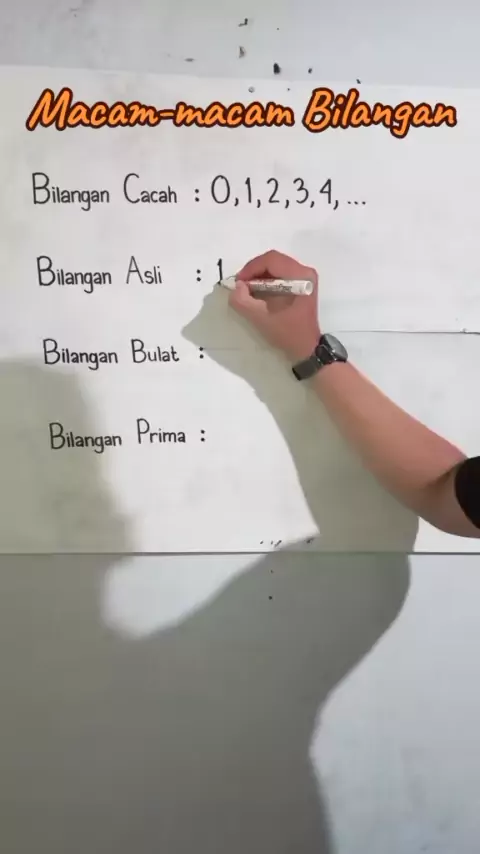 Macam-macam Bilangan
Bilangan Cacah : 0,1,2,3,4,...
Bilangan Asli : 1
Bilangan Bulat :
Bilangan Prima :